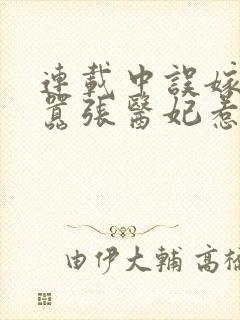 連載中誤嫁
囂張醫妃惹
由伊大輔 高橋